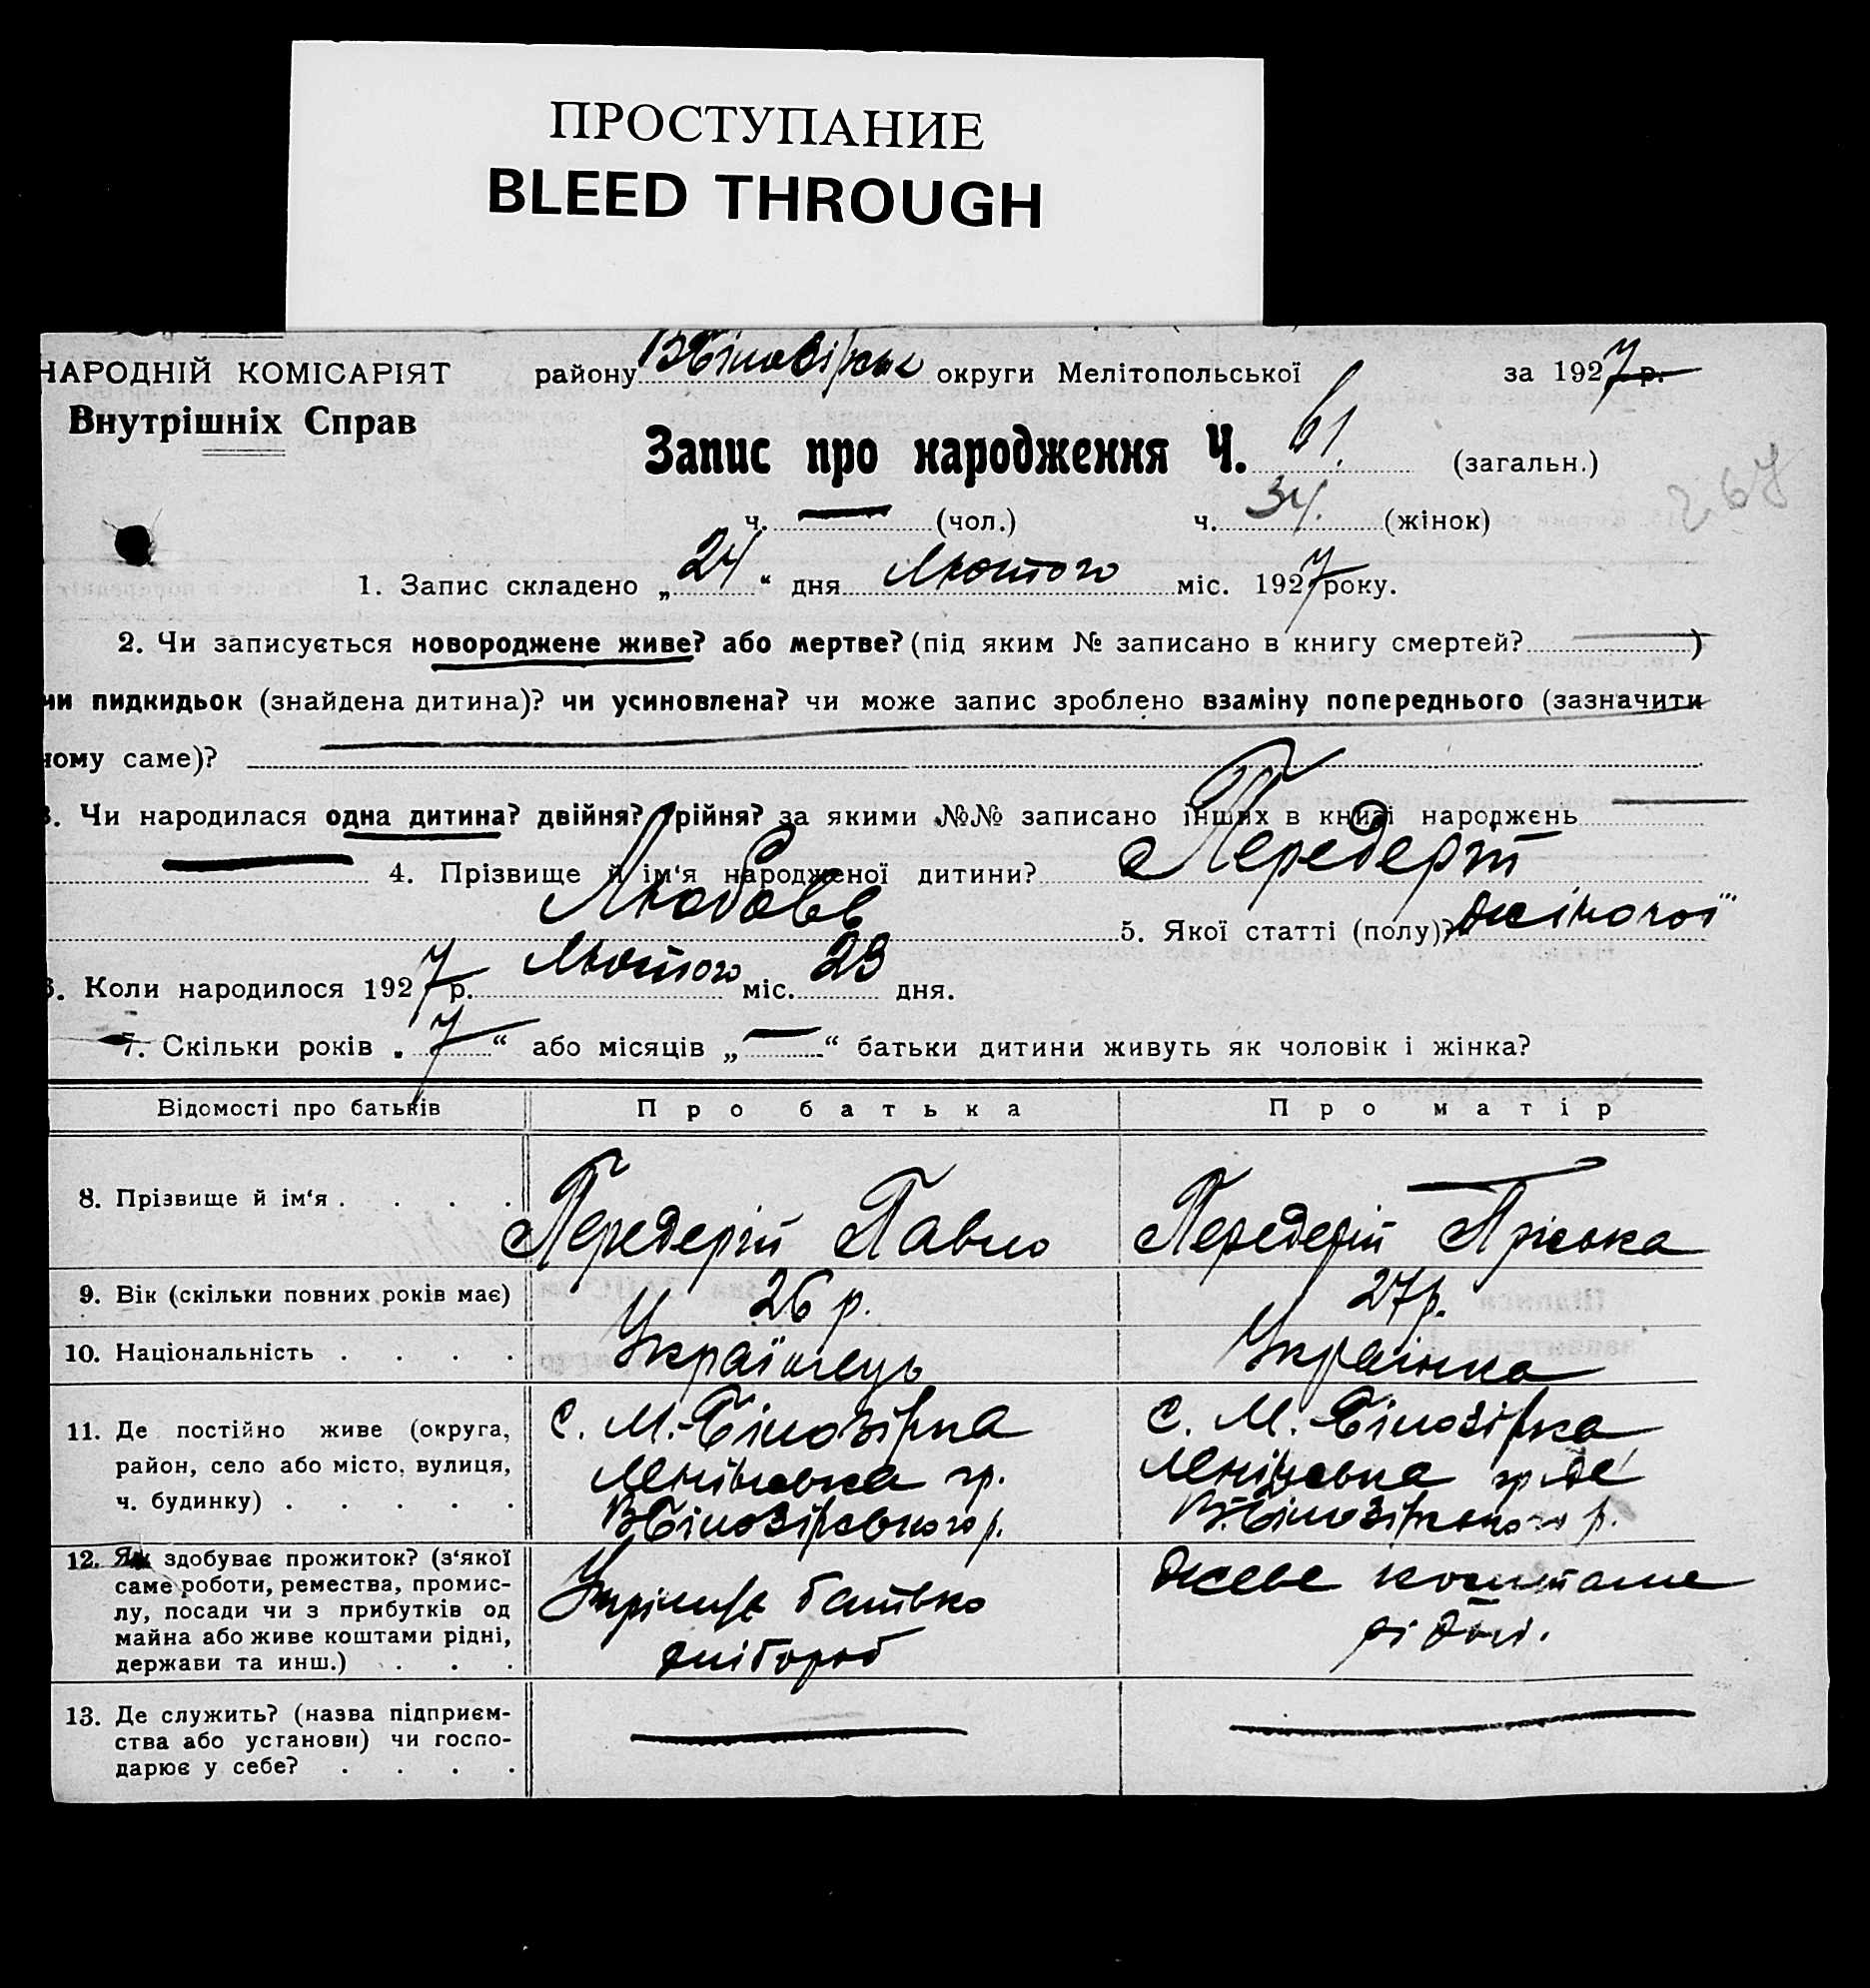 ПРОСТУПАНИЕ
BLEED THROUGH
НАРОДНІЙ КОМІСАРІЯТ району округи Мелітопольської за 1927 р.
Внутрішніх Справ
Запис про народження Ч. 61. (загальн.)
268
ч. — (чол.) ч. 34. (жінок)
1. Запис складено „24“ дня Лютого міс. 1927 року.
2. Чи записується новороджене живе? або мертве? (під яким № записано в книгу смертей? —)
чи пидкидьок (знайдена дитина)? чи усиновлена? чи може запис зроблено взаміну попереднього (зазначити
чому саме)?
3. Чи народилася одна дитина? двійня? трійня? за якими №№ записано інших в книзі народжень —
— 4. Прізвище й ім‘я народженої дитини? Передерій
Любовь 5. Якої статті (полу)? жіночої
6. Коли народилося 1927 р. Лютого міс. 23 дня.
7. Скільки років „7“ або місяців „—“ батьки дитини живуть як чоловік і жінка?
Відомості про батьків Про батька Про матір
8. Прізвище й ім‘я . . . . Передерій Павло Передерій Пріська
9. Вік (скільки повних років має) 26 р. 27 р.
10. Національність . . . . Українець Українка
11. Де постійно живе (округа, с. М.-Білозірка с. М.-Білозірка
район, село або місто, вулиця, гр.
ч. будинку) . . . . . В-Білозірського р. В.-Білозірського р.
12. Як здобуває прожиток? (з‘якої
саме роботи, ремества, промис- батько живе коштами
лу, посади чи з прибутків од
майна або живе коштами рідні, хлібороб рідні.
держави та инш.) . . .
13. Де служить? (назва підприєм-
ства або установи) чи госпо- — —
дарює у себе? . . . .